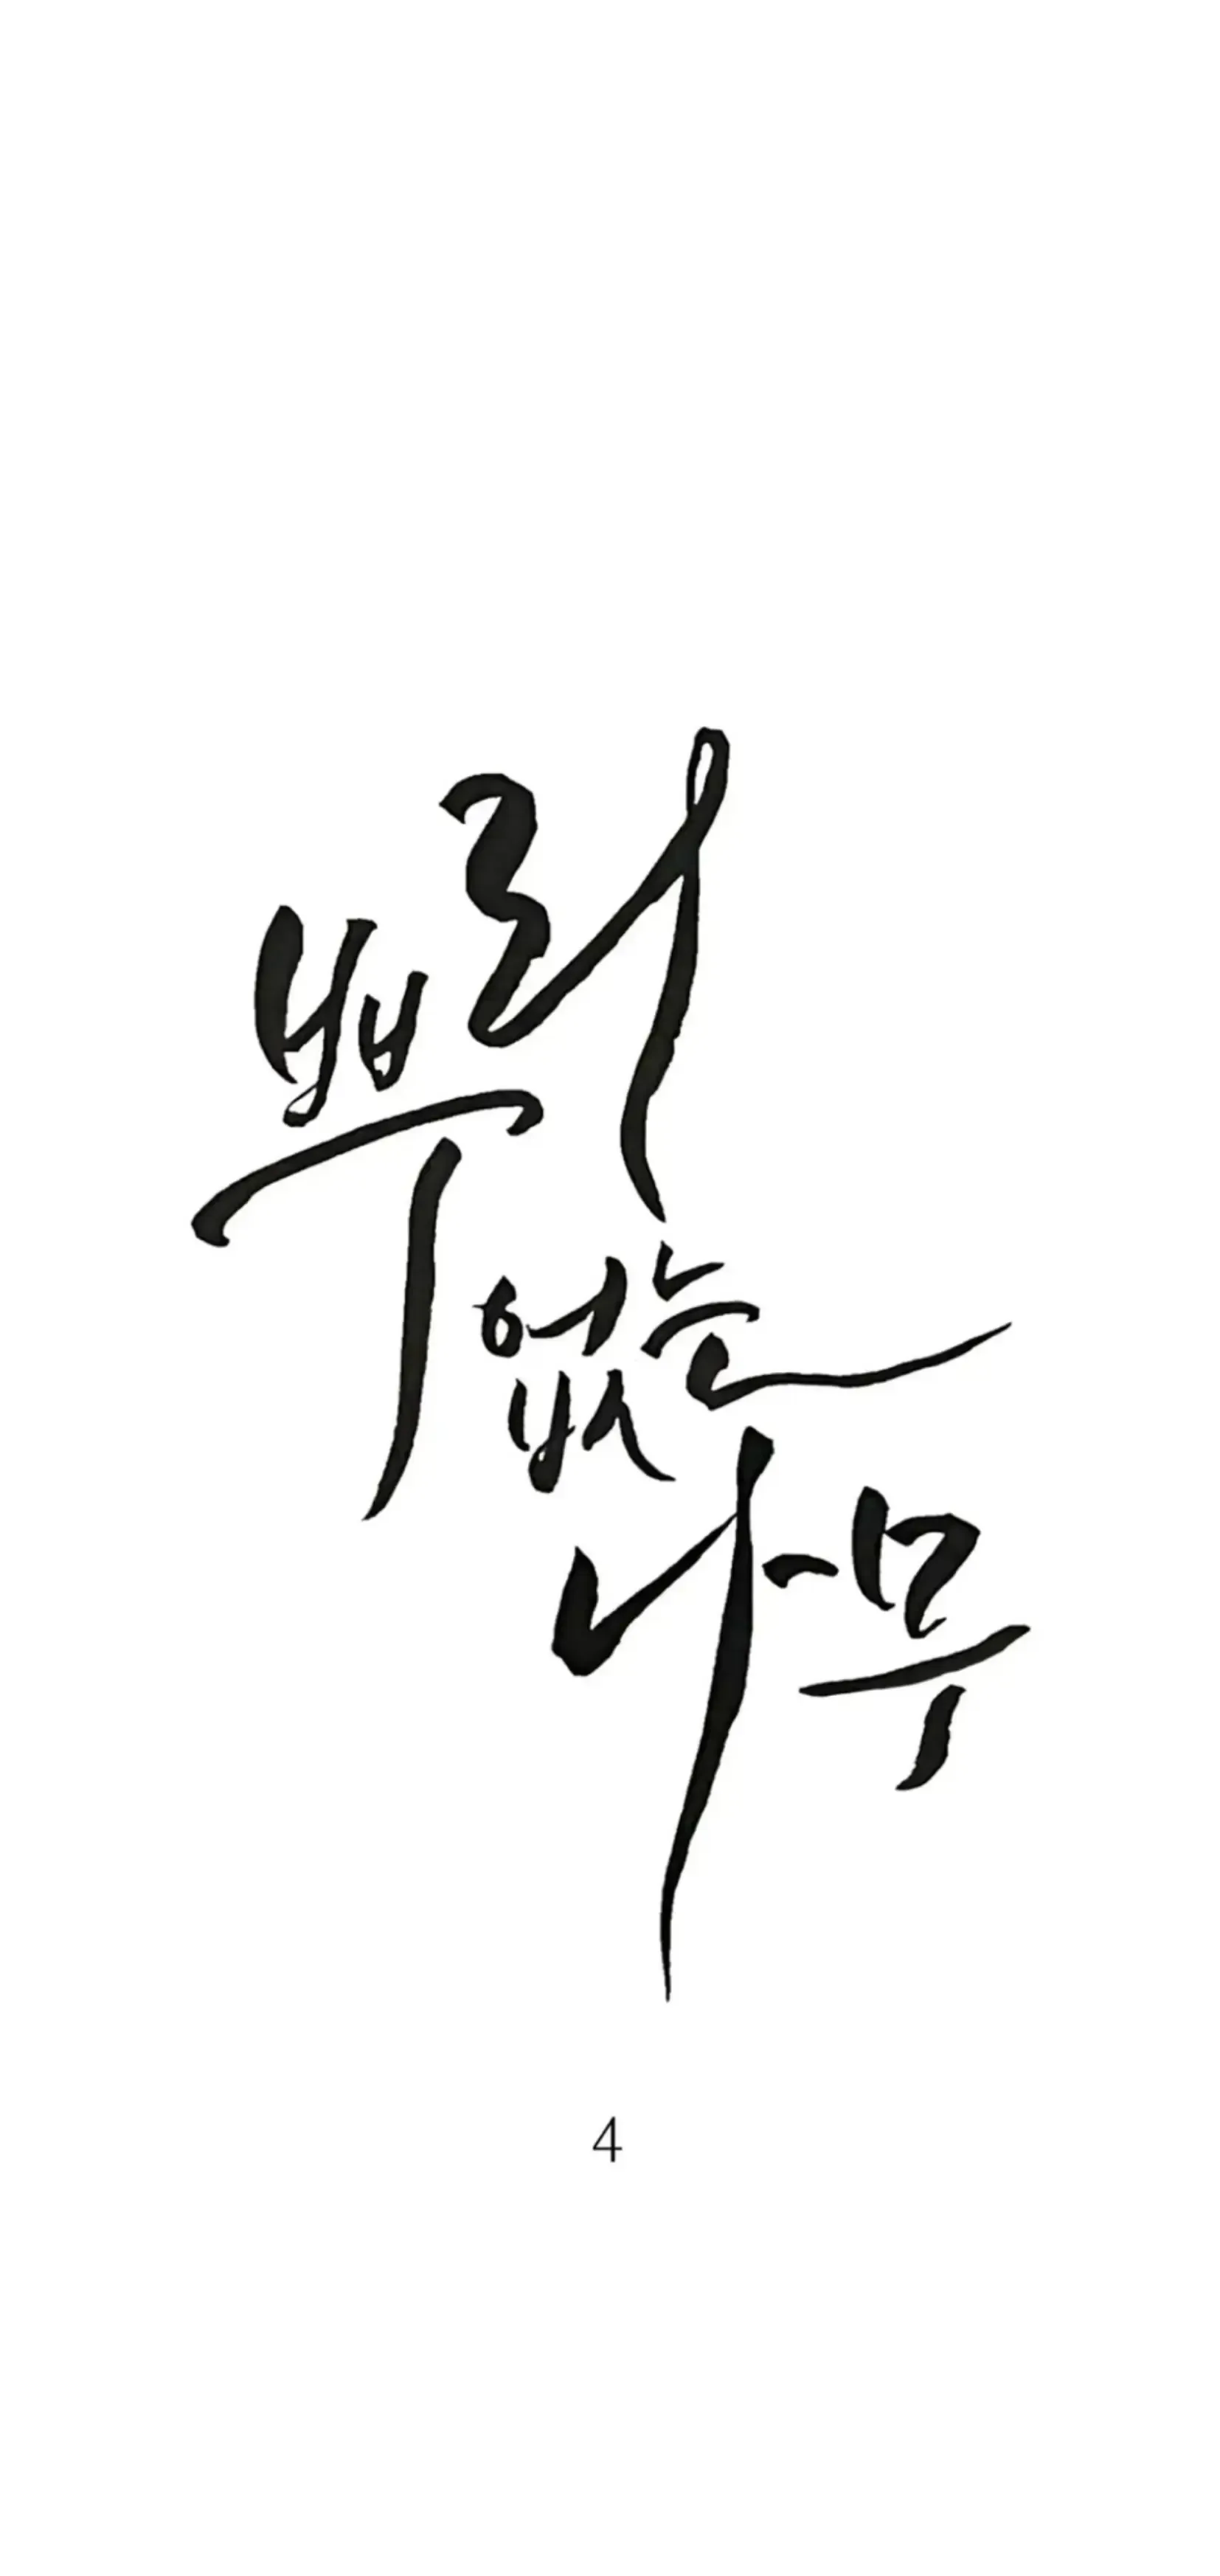 뿌리
없는
나무
4